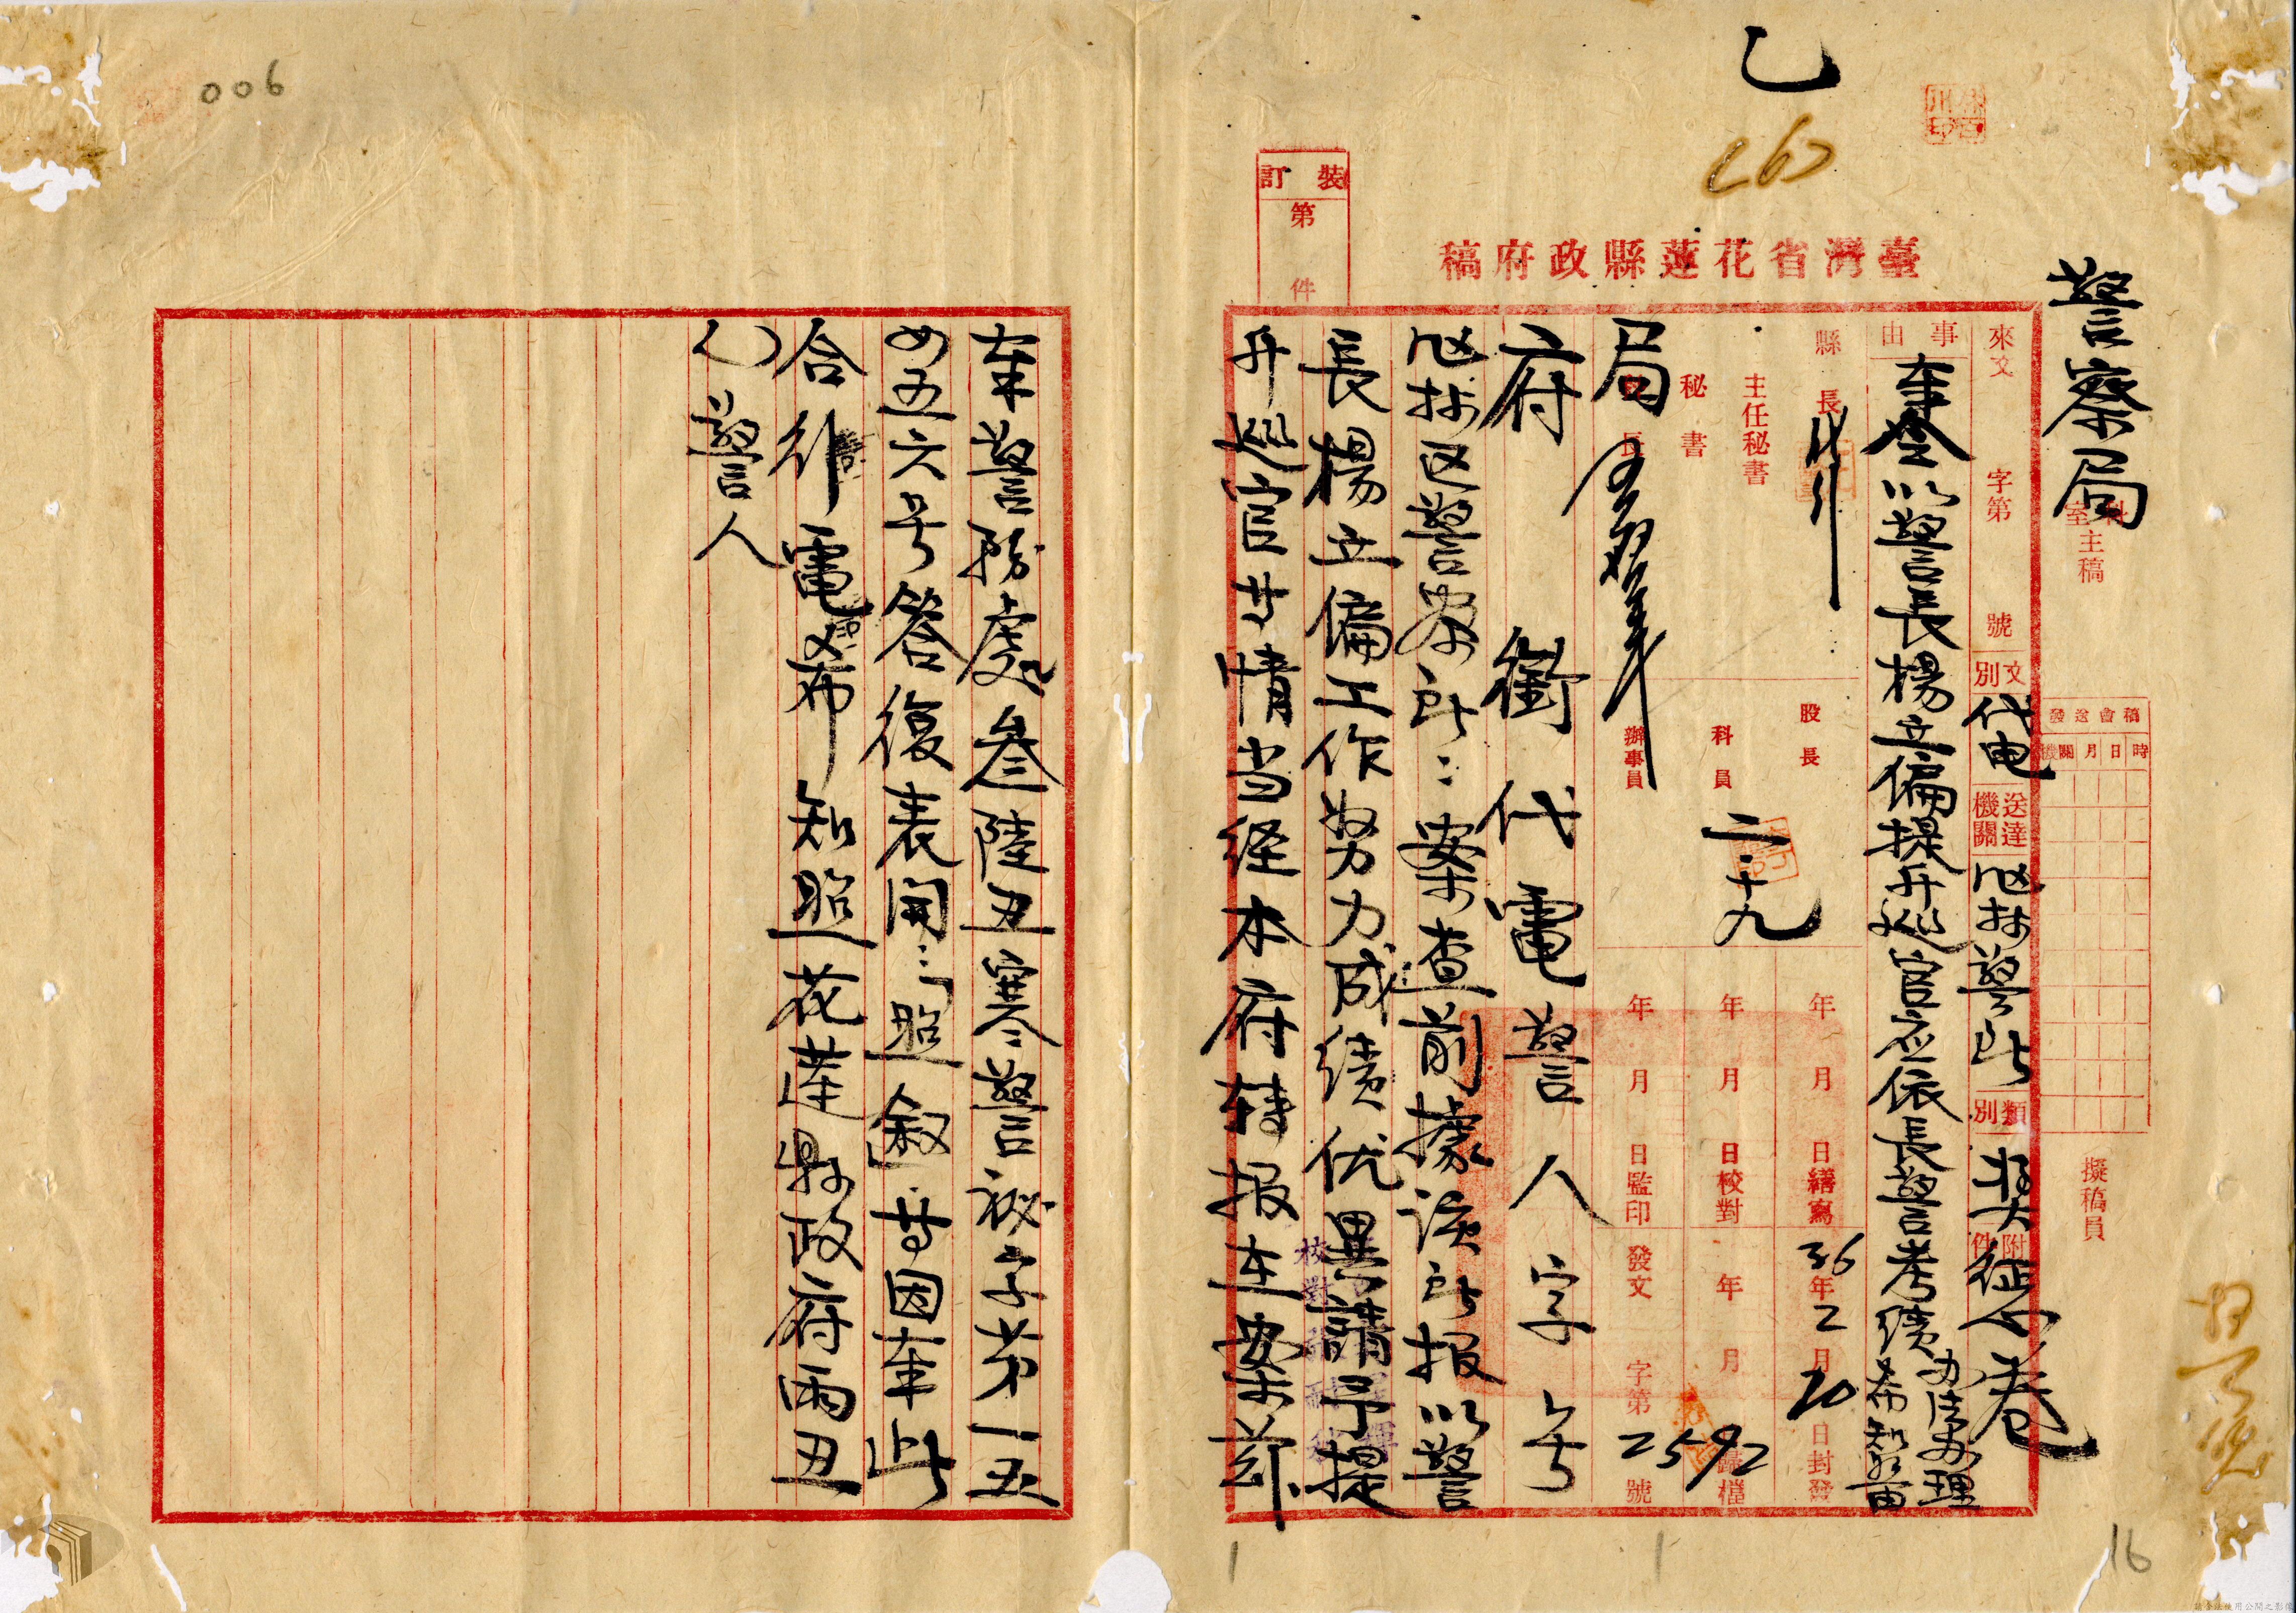 006
乙
(6)
裝訂
第 件
臺灣省花蓮縣政府稿
警察局
科室主稿
擬稿員
稿會送發
時日月機關
來文 字第 號
文別 代电
送達機關
類別
附件
卷
事由
奉令以警長楊立偏提升巡官应依長警考績办法办理
希知照由
縣長
主任秘書
秘書
局長
股長
科員
辦事員
二.十九
年 月 日繕寫
年 月 日校對
年 月 日監印
36年2月20日封發
年 月 歸檔
發文 字第2592號
府銜代電警人字 号
区警察所：案查前據该所报以警
長楊立偏工作努力成绩优異請予提
升巡官廿情当经本府转报在案兹
奉警務處叁陸丑寒警秘字第一五
四五六号答復表開：「照敘」等因奉此
合行電希知照花蓮县政府丙丑
（ ）警人
16